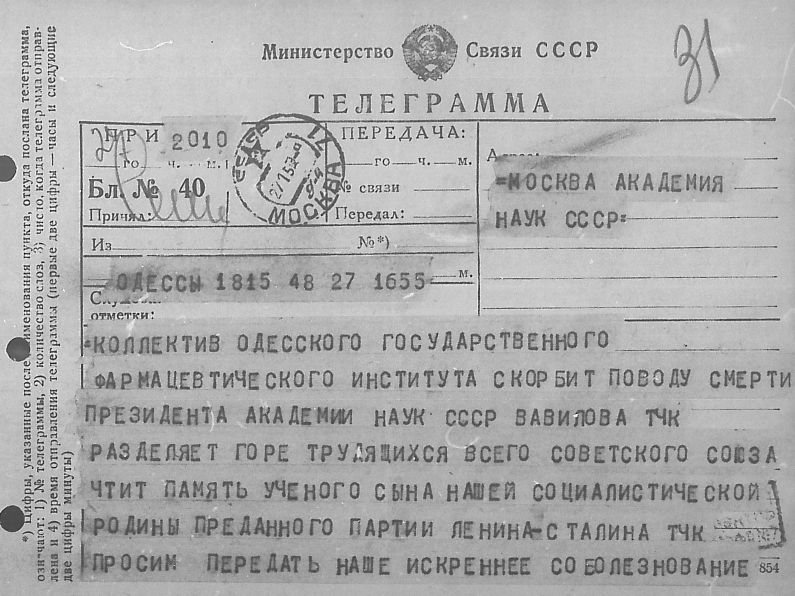 31
Министерство Связи СССР
ТЕЛЕГРАММА
ПРИ 2010
го ч. м.
Бл. № 40
Принял:
МОСКВА
ПЕРЕДАЧА:
го ч. м.
№ связи
Передал:
=МОСКВА АКАДЕМИЯ
НАУК СССР=
Из №*)
ОДЕССЫ 1815 48 27 1655 м.
отметки:
=КОЛЛЕКТИВ ОДЕССКОГО ГОСУДАРСТВЕННОГО
ФАРМАЦЕВТИЧЕСКОГО ИНСТИТУТА СКОРБИТ ПОВОДУ СМЕРТИ
ПРЕЗИДЕНТА АКАДЕМИИ НАУК СССР ВАВИЛОВА ТЧК
РАЗДЕЛЯЕТ ГОРЕ ТРУДЯЩИХСЯ ВСЕГО СОВЕТСКОГО СОЮЗА
ЧТИТ ПАМЯТЬ УЧЕНОГО СЫНА НАШЕЙ СОЦИАЛИСТИЧЕСКОЙ
РОДИНЫ ПРЕДАННОГО ПАРТИИ ЛЕНИНА-СТАЛИНА ТЧК
ПРОСИМ ПЕРЕДАТЬ НАШЕ ИСКРЕННЕЕ СОБОЛЕЗНОВАНИЕ 854
*) Цифры, указанные после наименования пункта, откуда послана телеграмма,
означают: 1) № телеграммы, 2) количество слов, 3) число, когда телеграмма отправ-
лена и 4) время отправления телеграммы (первые две цифры — часы и следующие
две цифры минуты)